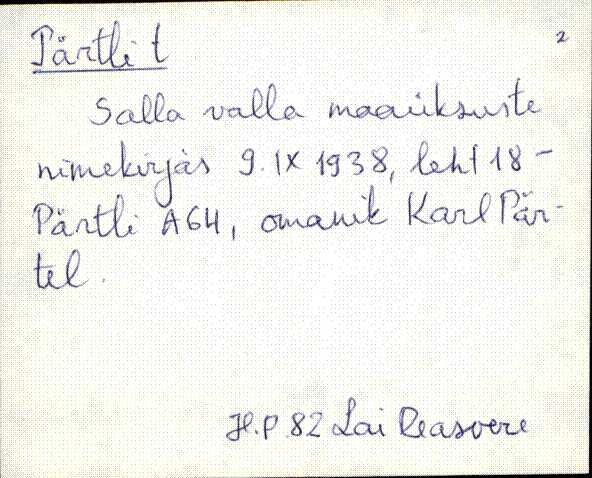 Pärtli t 2
Salla valla maaüksuste
nimekirjas 9.IX 1938, leht 18 -
Pärtli A64, omanik Karl Pär-
tel.
H.P.82 Lai Reasvere